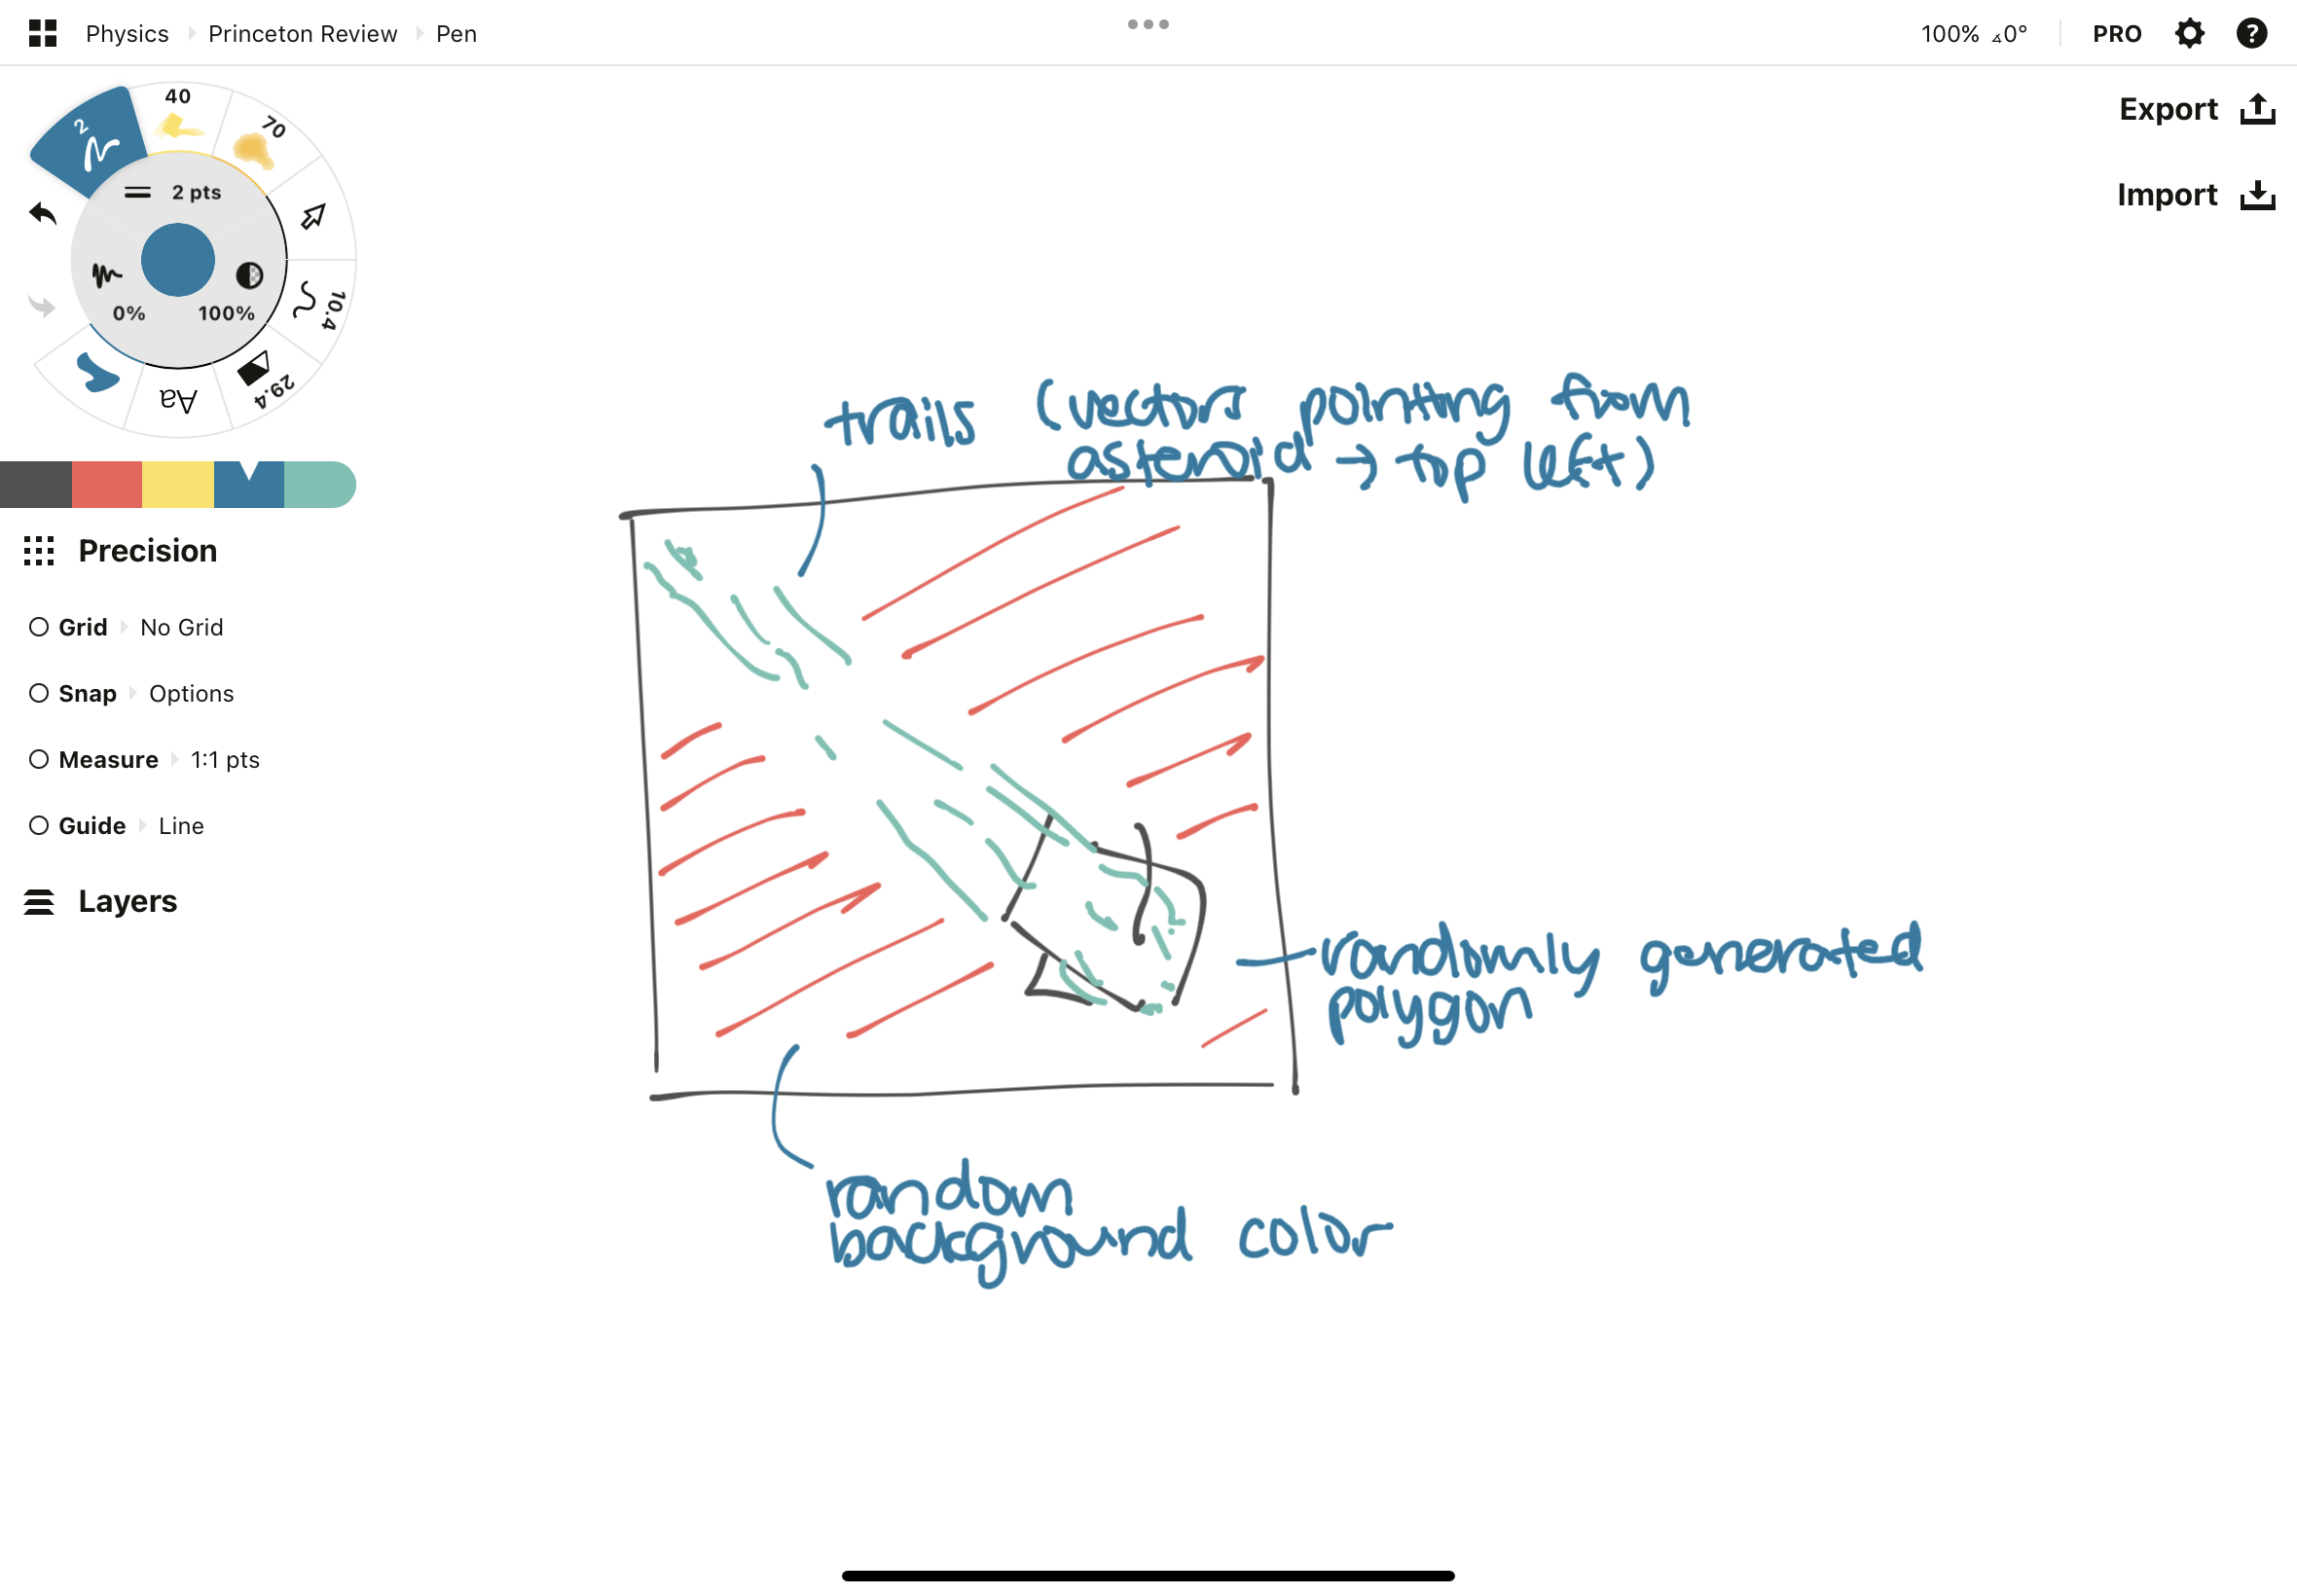 Physics Princeton Review Pen
100% ∡0° PRO ?
Export
Import
40
70
2
2 pts
10.4
0% 100%
29.4
Aa
Precision
Grid No Grid
Snap Options
Measure 1:1 pts
Guide Line
Layers
trails (vectors pointing from
asteroid → top left)
randomly generated
polygon
random
background color